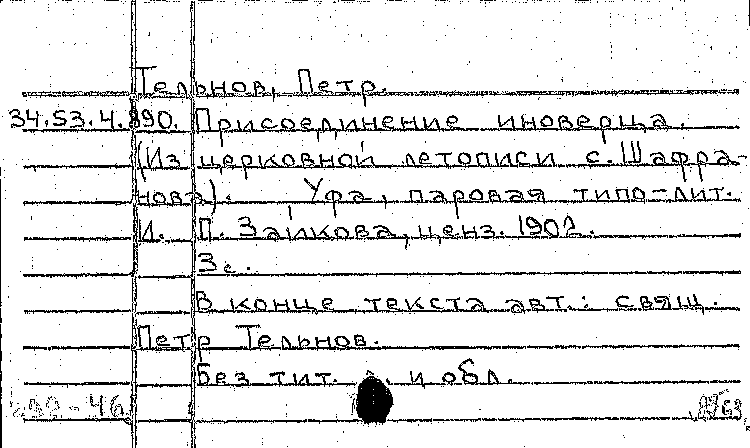 Тельнов, Петр.
34.53.4.890. Присоединение иноверца.
(Из церковной летописи с. Шафра-
нова). Уфа, паровая типо-лит.
И. П. Зайкова, ценз. 1902.
3с.
В конце текста авт.: свящ.
Петр Тельнов.
Без тит. л. и обл.
-46